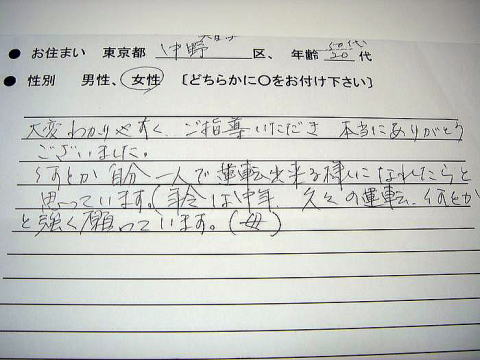 ● お住まい 東京都 中野 区、 年齢 50代 20 代
● 性別 男性、女性 〔どちらかに〇をお付け下さい〕
大変わかりやすく、ご指導いただき 本当にありがとう
ございました。
何とか自分一人で運転出来る様になれたらと
思っています。(年令は中年 久々の運転、何とか
と強く願っています。(母)